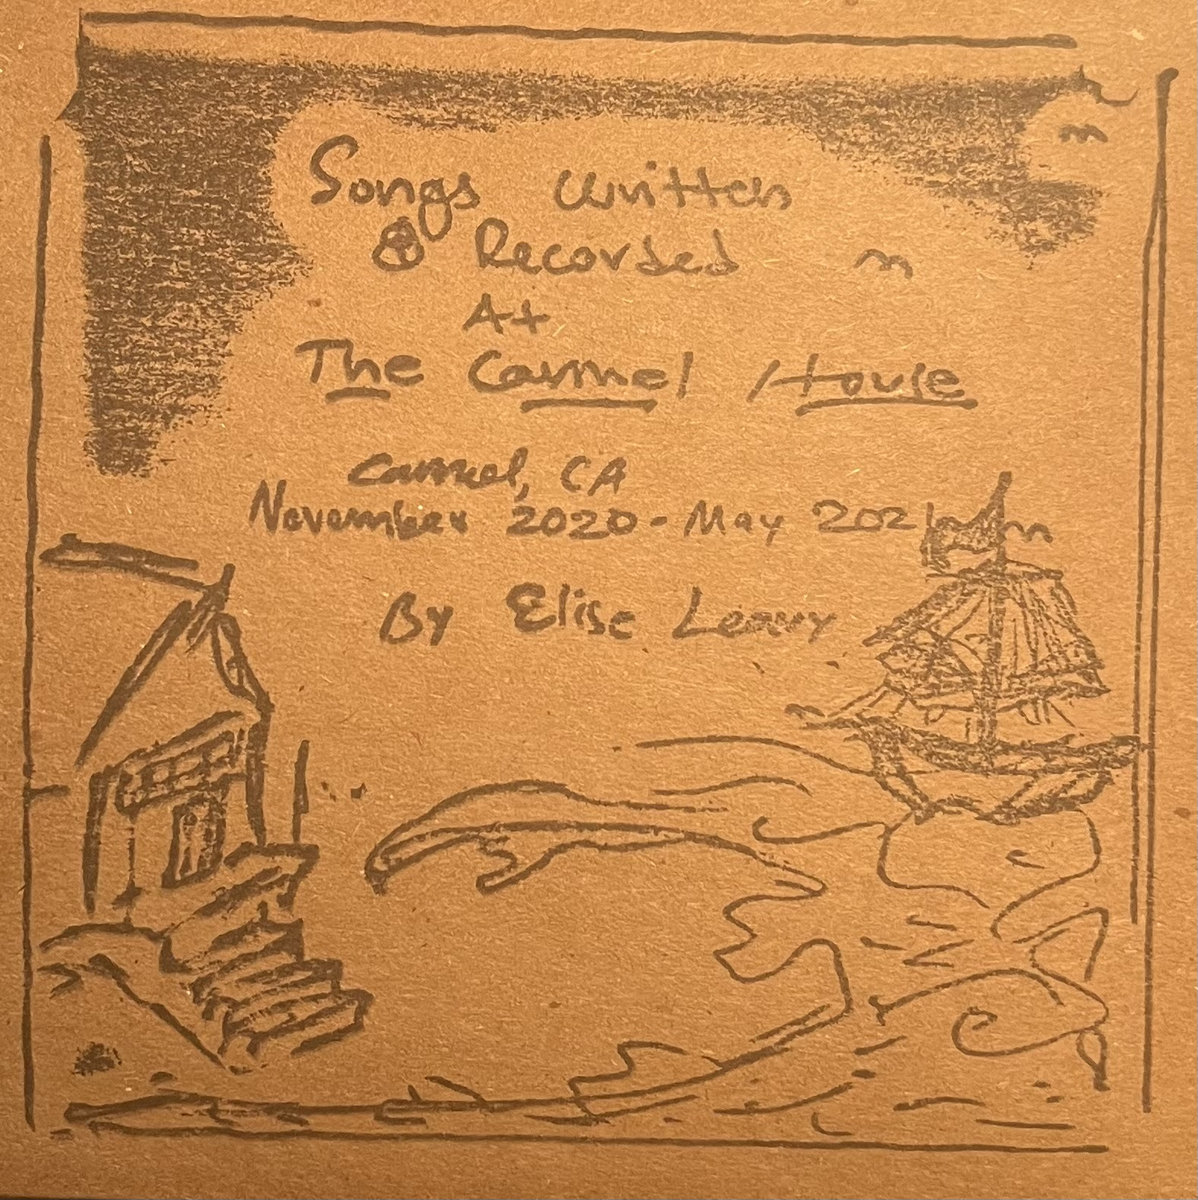 Songs written
& Recorded
At
The Carmel House
Carmel, CA
November 2020 - May 2021
By Elise Leavy